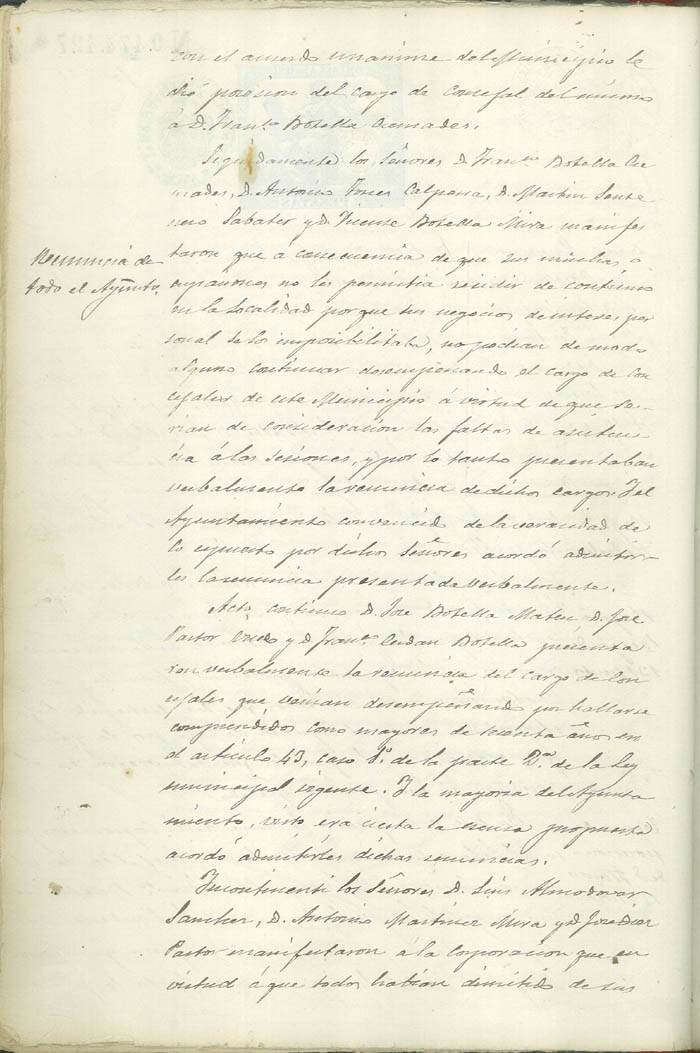 con el acuerdo unanime del Municipio le
dió posesion del cargo de Concejal del mismo
á D. Franco. Botella Cremades.
Seguidamente los Señores D. Franco. Botella Cre
mades, D. Antonio Torres Calpena, D. Martin Sente
nero Sabater y D. Vicente Botella Mira manifes
Renuncia de
todo el Ayunto.
taron que á consecuencia de que sus muchas o
cupaciones no les permitia residir de continuo
en la localidad porque sus negocios de interes per
sonal se los imposibilitaba, no podian de modo
alguno continuar desempeñando el cargo de Con
cejales de este Municipio á virtud de que se-
rian de consideración las faltas de asisten-
cia á las Sesiones, y por lo tanto presentaban
verbalmente la renuncia de dichos cargos. Y el
Ayuntamiento convencido de la veracidad de
lo expuesto por dichos Señores acordó admitir-
les la renuncia presentada verbalmente.
Acto continuo D. José Botella Mateu D. José
Pastor y D. Franco. Cerdan Botella presenta
ron verbalmente la renuncia del cargo de Con
cejales que venian desempeñando por hallarse
comprendidos como mayores de sesenta años en
el artículo 43, caso 1º de la parte 2ª de la Ley
municipal vigente. Y la mayoria del Ayunta
miento, visto era cierta la escusa propuesta
acordó admitirles dichas renuncias.
Incontinenti los Señores D. Luis Almodovar
Sanchez, D. Antonio Martinez Mira y D. José Diez
Pastor manifestaron á la Corporacion que en
virtud á que todos habian dimitido de sus